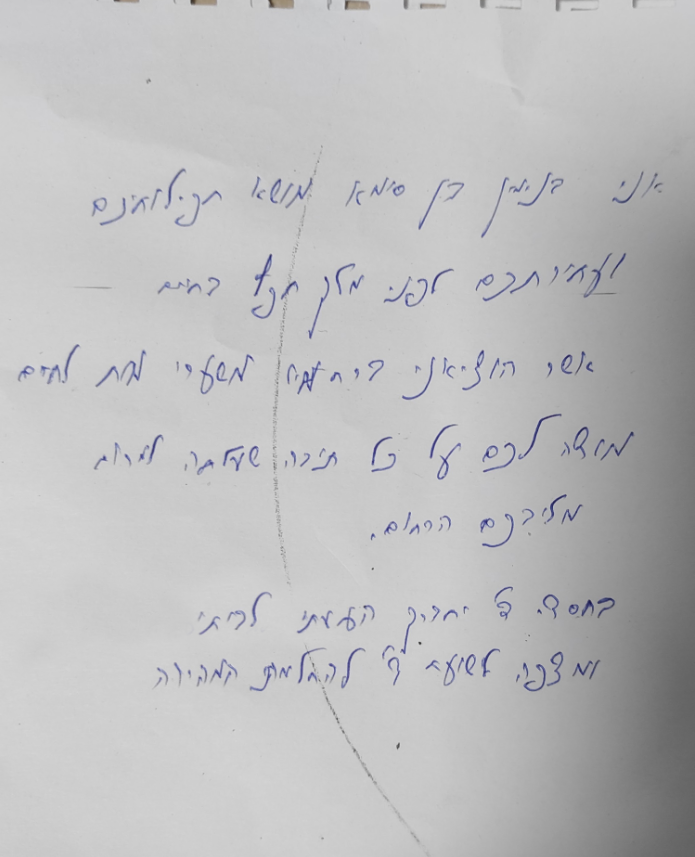 אני בנימין בן סימא נושא תפילותיכם
ועתירתכם לפני מלך חפץ בחיים
אשר הוציאני ברחמיו משערי מות לחיים
מודה לכם על כל תיבה שעלתה למרום
מליבכם הרחום.
בחסדי ד' יתברך הגעתי לביתי
ומצפה לישועת ד' להחלמתי המהירה